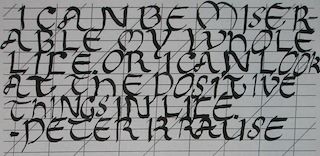 I CAN BE MISER-
ABLE MY WHOLE
LIFE OR I CAN LOOK
AT THE POSITIVE
THINGS IN LIFE.
-PETER KRAUSE